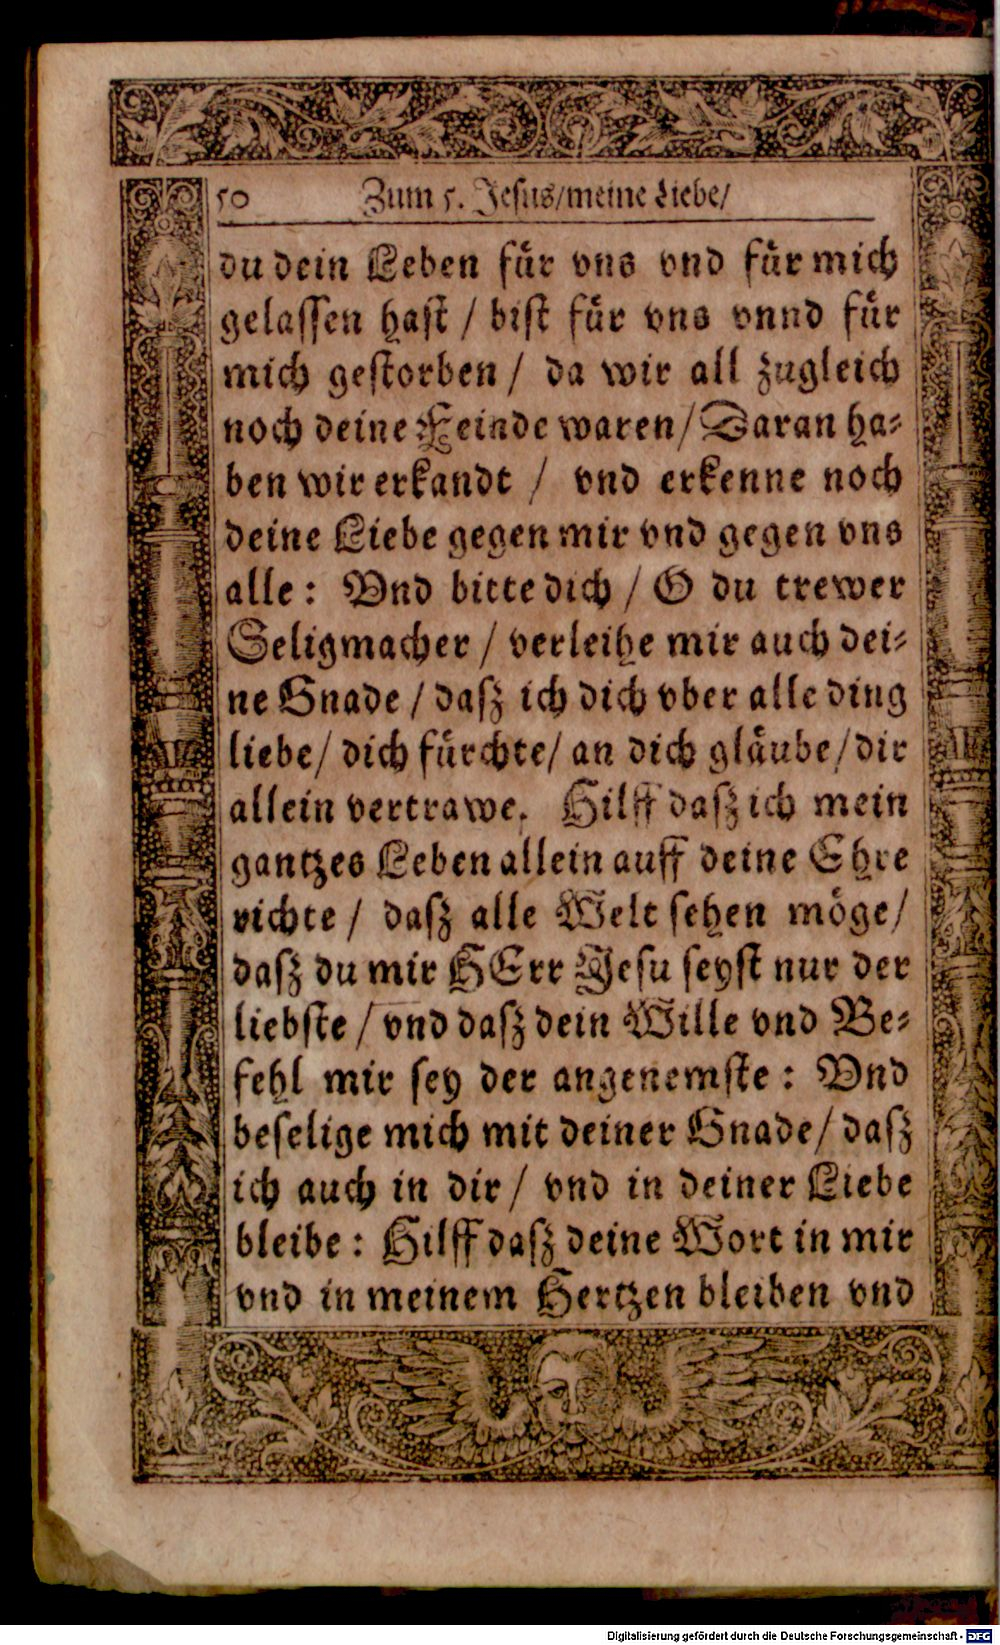 50 Zum 5. Jesus/meine Liebe/
du dein Leben fuͤr vns vnd fuͤr mich
gelassen hast / bist fuͤr vns vnnd fuͤr
mich gestorben / da wir all zugleich
noch deine Feinde waren/ Daran ha⸗
ben wir erkandt / vnd erkenne noch
deine Liebe gegen mir vnd gegen vns
alle: Vnd bitte dich / O du trewer
Seligmacher / verleihe mir auch dei⸗
ne Gnade / dasz ich dich vber alle ding
liebe/ dich fuͤrchte/ an dich glaͤube/ dir
allein vertrawe. Hilff dasz ich mein
gantzes Leben allein auff deine Ehre
richte / dasz alle Welt sehen moͤge/
dasz du mir HErr Jesu seyst nur der
liebste / vnd dasz dein Wille vnd Be⸗
fehl mir sey der angenemste: Vnd
beselige mich mit deiner Gnade/ dasz
ich auch in dir / vnd in deiner Liebe
bleibe: Hilff dasz deine Wort in mir
vnd in meinem Hertzen bleiben vnd
Digitalisierung gefördert durch die Deutsche Forschungsgemeinschaft - DFG